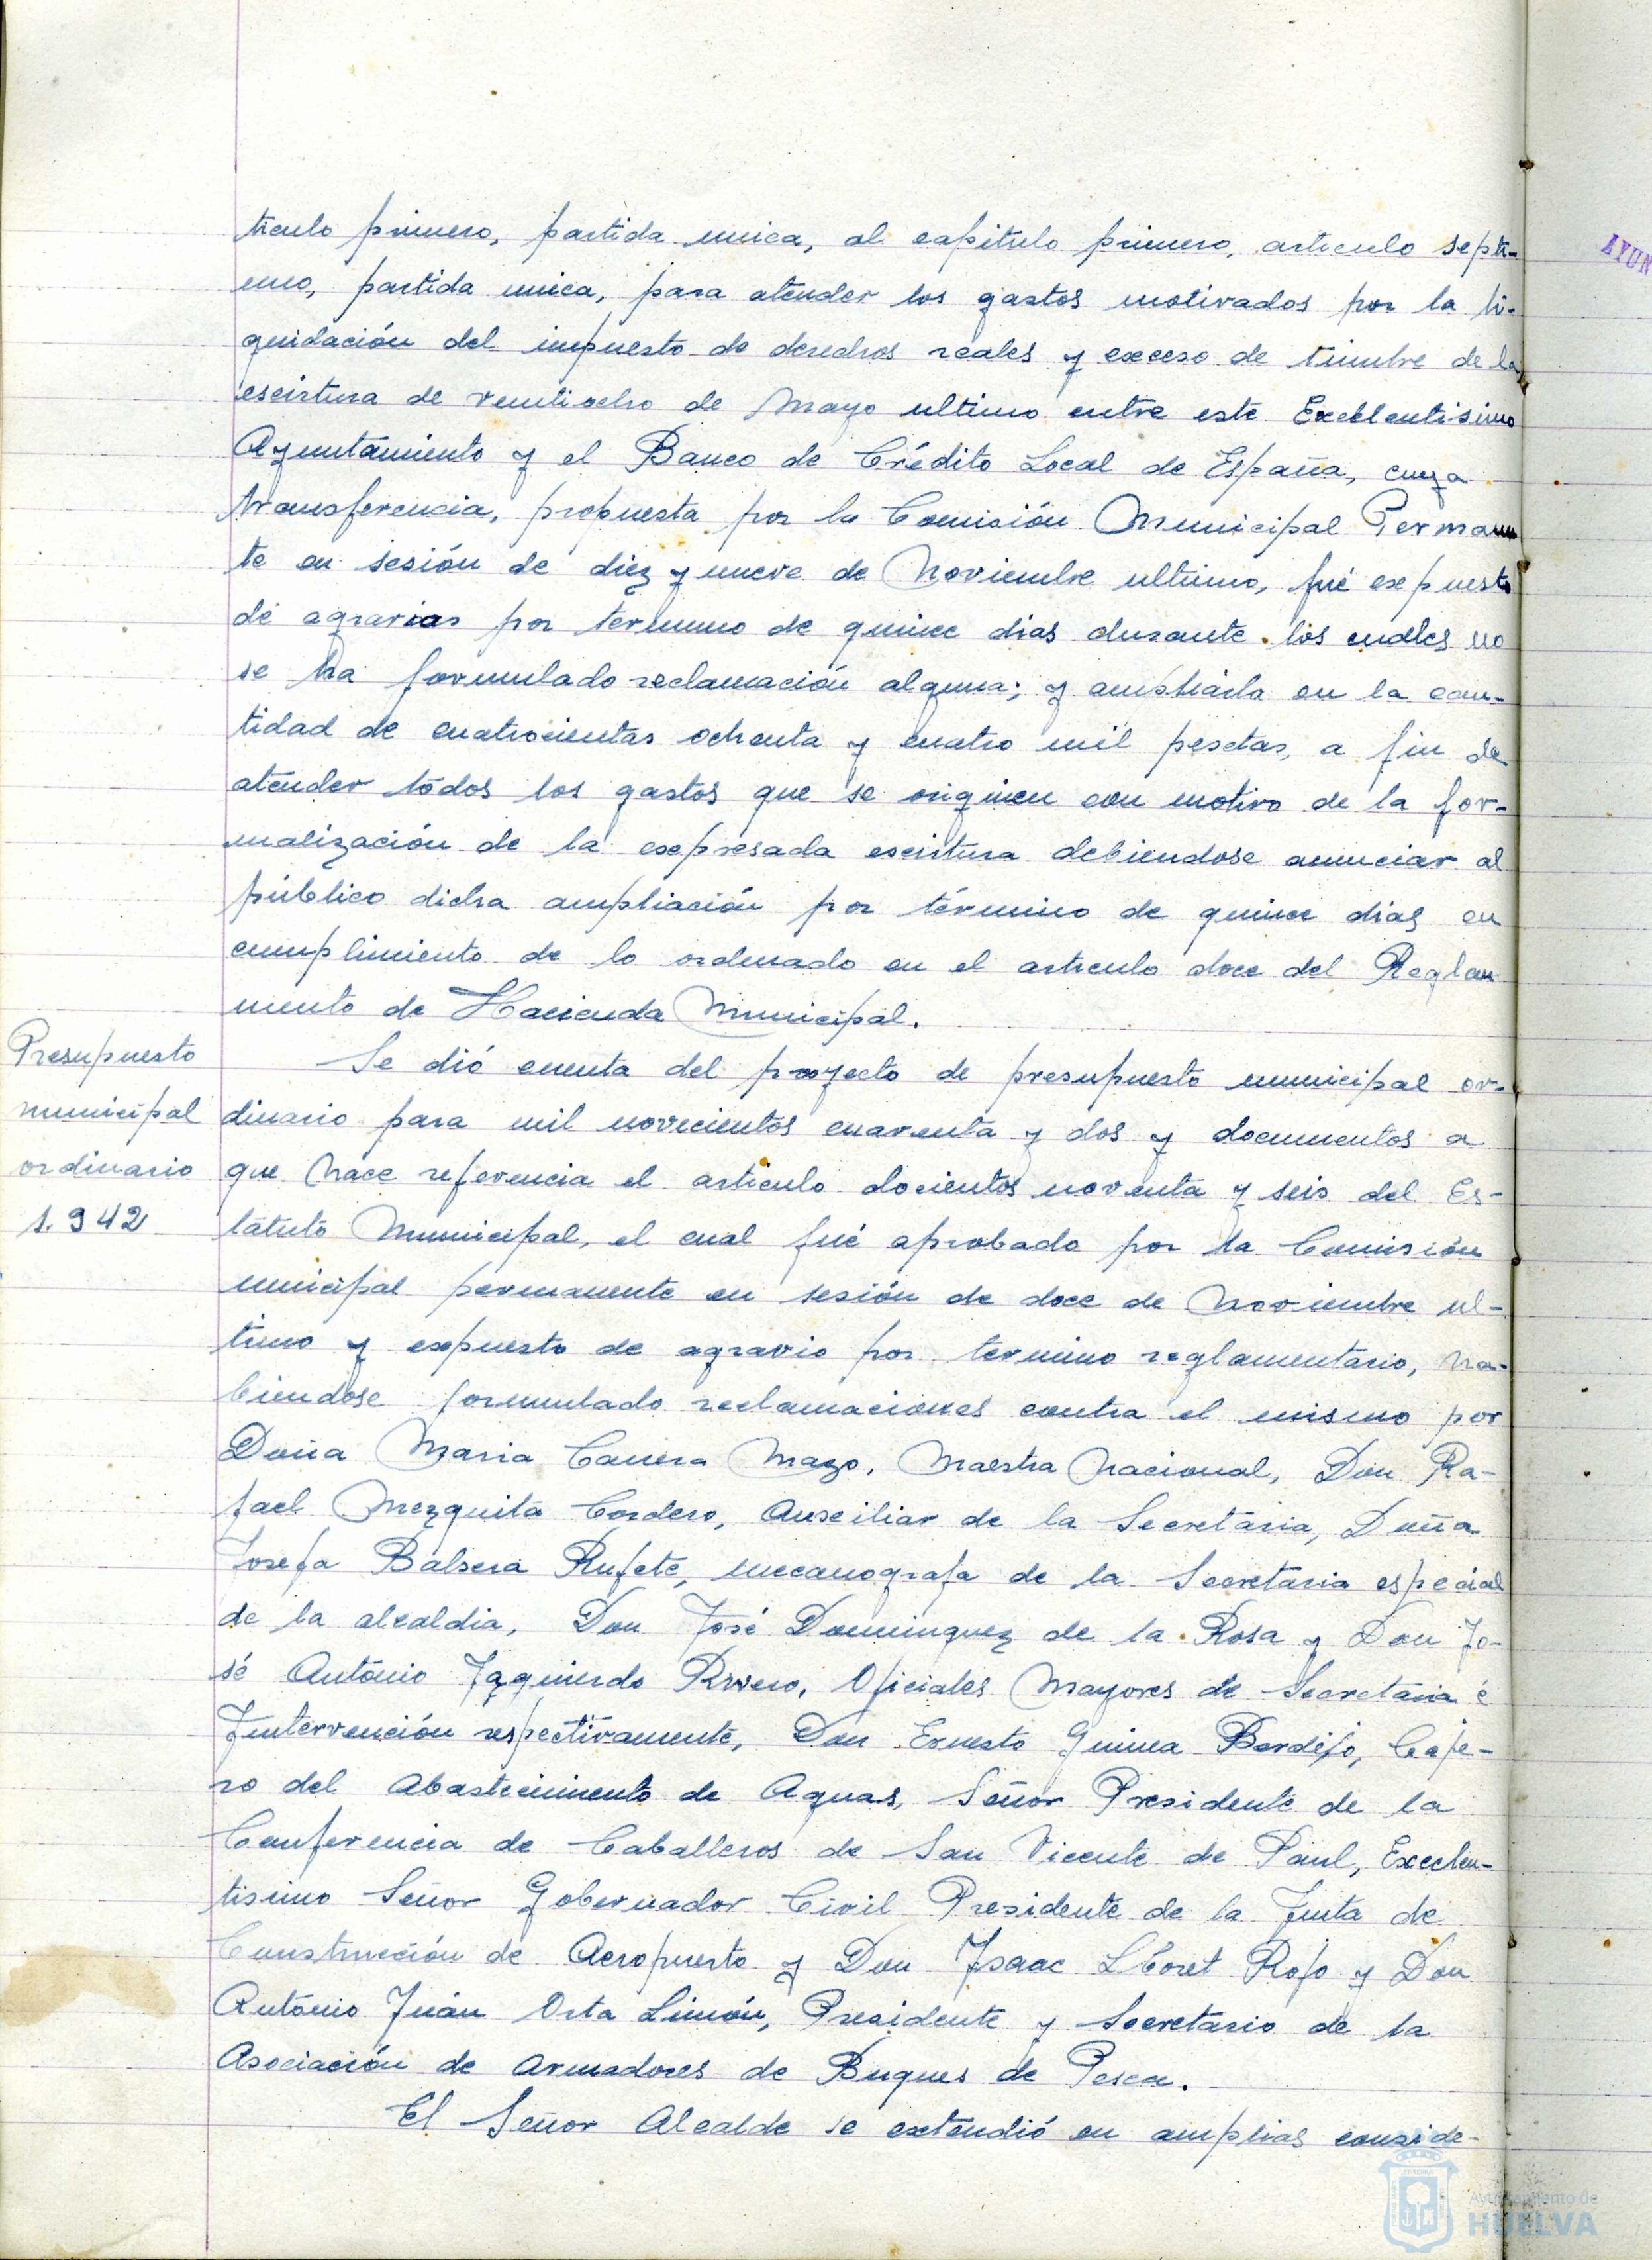 ticulo primero, partida unica, al capitulo primero, articulo septi-
mo, partida unica, para atender los gastos motivados por la li-
quidación del impuesto de derechos reales y exceso de timbre de la
escritura de ventiocho de Mayo ultimo entre este Excelentisimo
Ayuntamiento y el Banco de Crédito Local de España, cuya
transferencia, propuesta por la Comisión Municipal Permanen
te en sesión de diez y nueve de Noviembre ultimo, fué expuesto
de agravios por termino de quince dias durante los cuales no
se ha formulado reclamación alguna; y ampliarla en la can-
tidad de cuatrocientas ochenta y cuatro mil pesetas, a fin de
atender todos los gastos que se originen con motivo de la for-
malización de la expresada escritura debiendose anunciar al
público dicha ampliación por término de quince dias en
cumplimiento de lo ordenado en el articulo doce del Reglam
mento de Hacienda Municipal.
Presupuesto
municipal
ordinario
1.942
Se dió cuenta del proyecto de presupuesto municipal or-
dinario para mil novecientos cuarenta y dos y documentos a
que hace referencia el articulo docientos noventa y seis del Es-
tatuto Municipal, el cual fué aprobado por la Comisión
municipal permanente en sesión de doce de Noviembre ul-
timo y expuesto de agravio por termino reglamentario, ha-
biendose formulado reclamaciones contra el mismo por
Doña Maria Mazo, Maestra Nacional, Don Ra-
fael Mezquita Cordero, Auxiliar de la Secretaria, Doña
Josefa Balsera Rufete, mecanografa de la Secretaria especial
de la alcaldia, Don José Dominguez de la Rosa y Don Jo-
sé Antonio Izquierdo Rivero, Oficiales Mayores de Secretaria é
Intervención respectivamente, Don Ernesto Guinea Berdejo, Caje-
ro del Abastecimiento de Aguas, Señor Presidente de la
Conferencia de Caballeros de San Vicente de Paul, Excelen-
tisimo Señor Gobernador Civil Presidente de la Junta de
Construcción de Aeropuerto y Don Isaac Lloret Rojo y Don
Antonio Juán Orta Limón, Presidente y Secretario de la
Asociación de Armadores de Buques de Pesca.
El Señor Alcalde se extendió en amplias conside-
AYUN
Ayuntamiento de
HUELVA